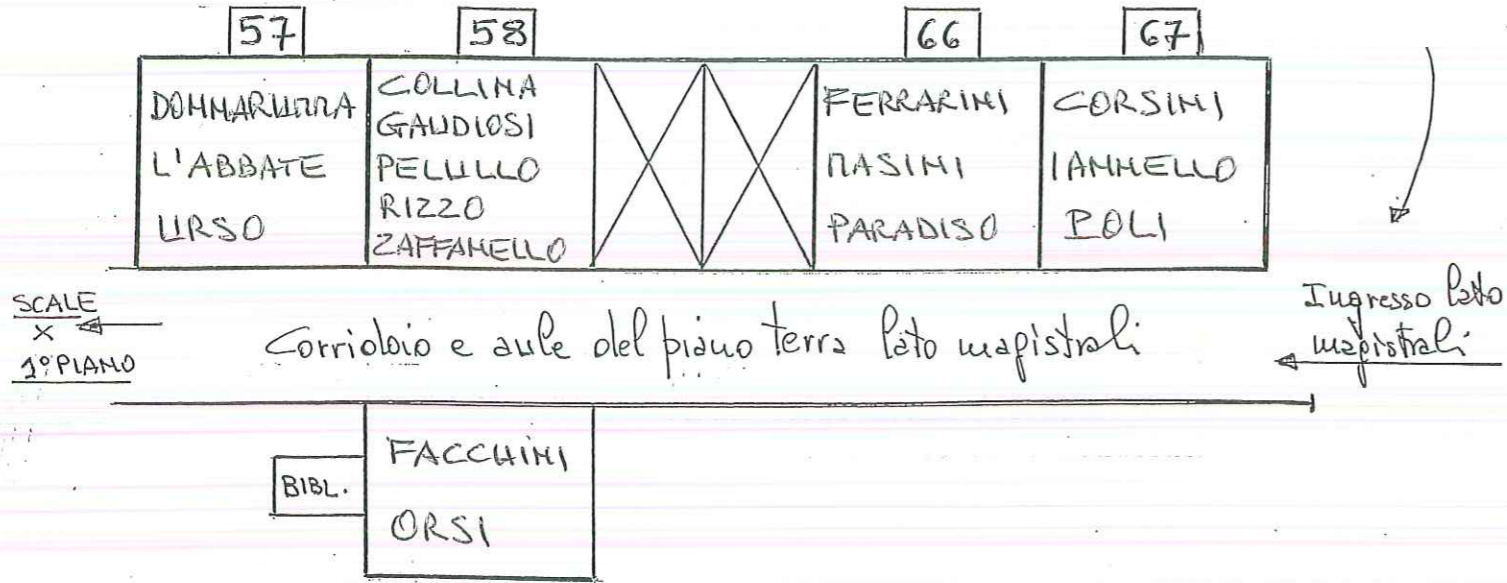 57
DONNARUMMA
L'ABBATE
URSO
58
COLLINA
GAUDIOSI
PELULLO
RIZZO
ZAFFANELLO
66
FERRARINI
MASINI
PARADISO
67
CORSINI
IANNELLO
POLI
SCALE
X
1° PIANO
Corridoio e aule del piano terra lato magistrali
Ingresso lato
magistrali
BIBL.
FACCHINI
ORSI